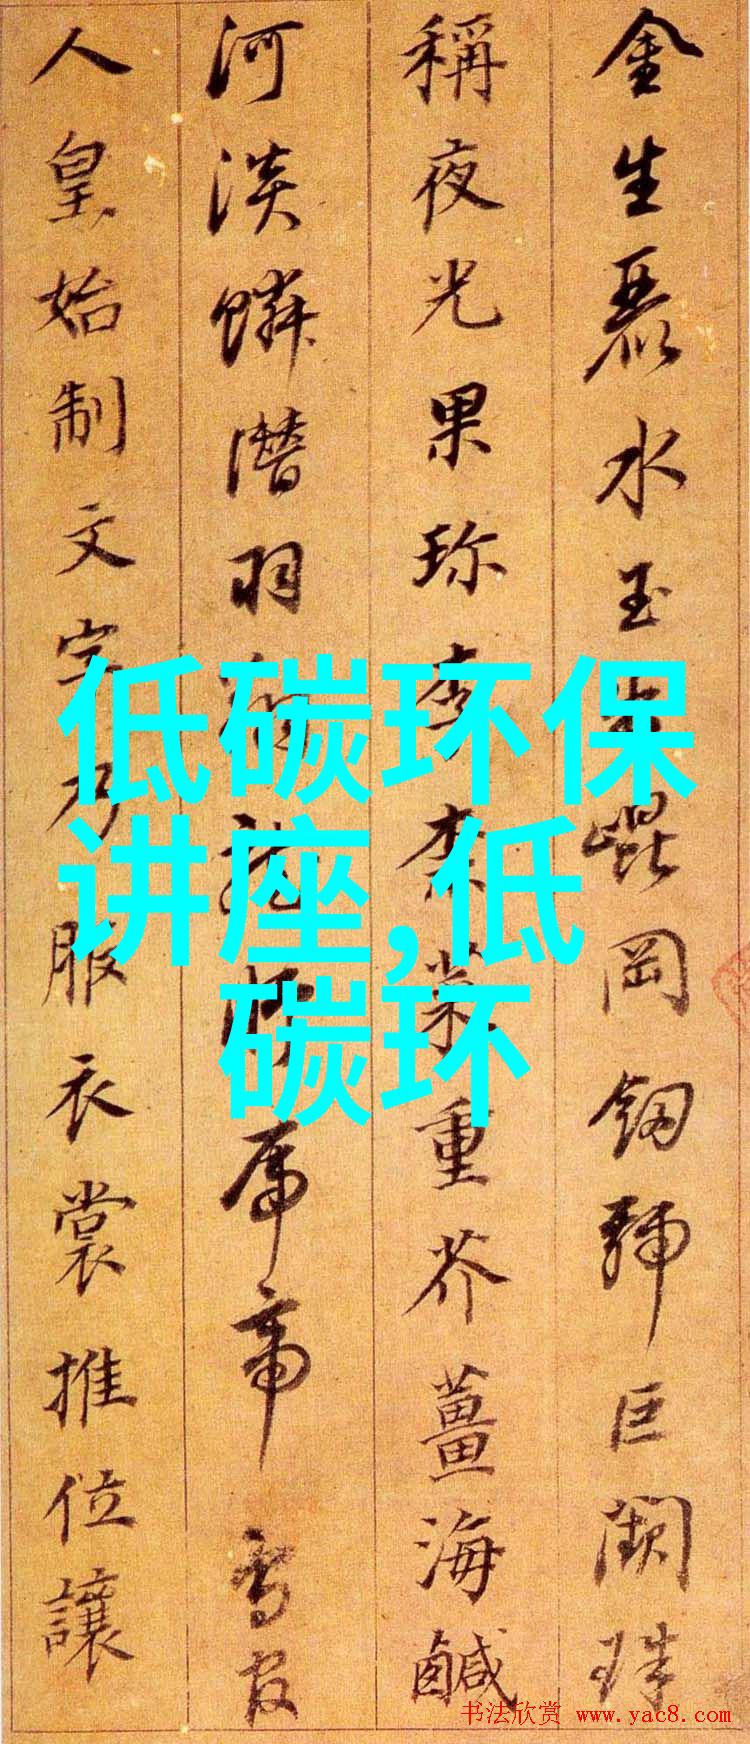 金生麗水玉出崐岡釰號巨闕珠
稱夜光果珍李柰菜重芥薑海鹹
河淡鱗潛羽翔龍師帝鳥官
人皇始制文字乃服衣裳推位讓
低碳环保
讲座,低
碳环
书法欣赏 www.yac8.com